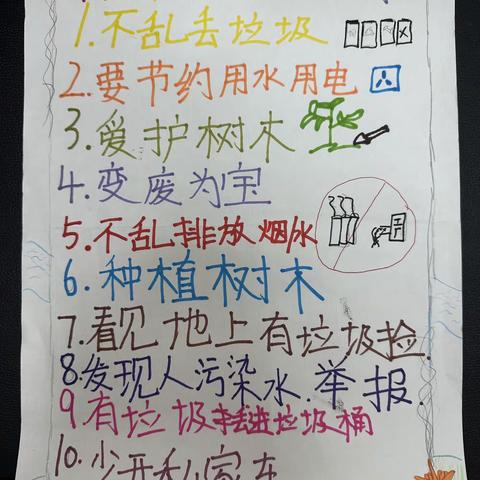 1.不乱丢垃圾
2.要节约用水用电
3.爱护树木
4.变废为宝
5.不乱排放烟/水
6.种植树木
7.看见地上有垃圾捡.
8.发现人污染水.举报.
9.有垃圾丢进垃圾桶
10.少开私家车